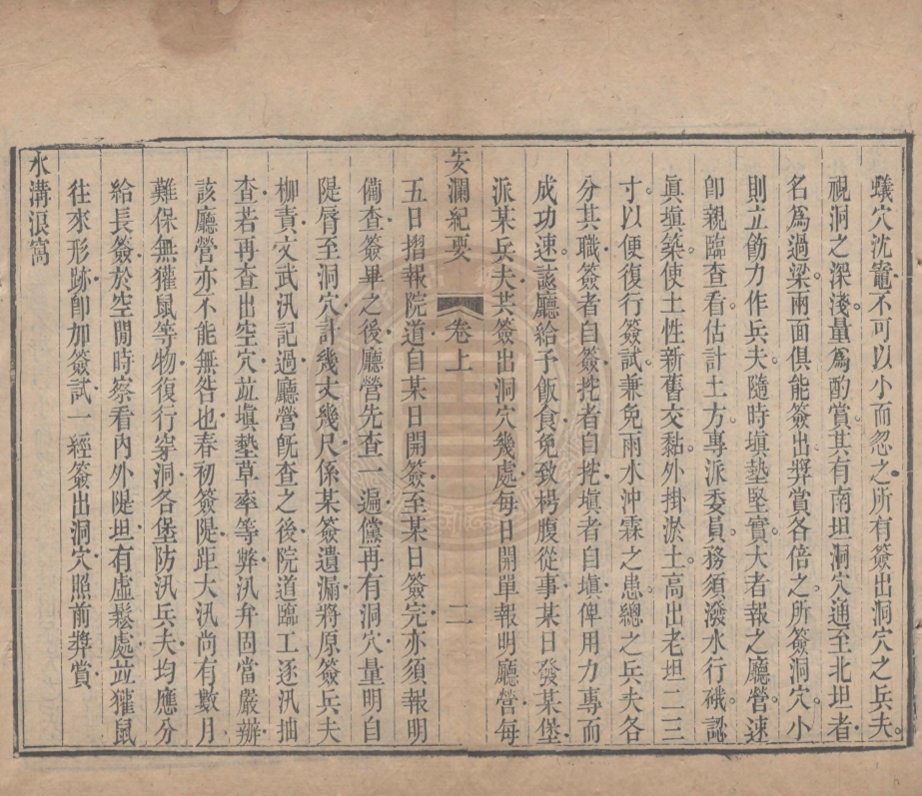 蟻穴沈竈不可以小而忽之所有簽出洞穴之兵夫
視洞之深淺量爲酌賞其有南坦洞穴通至北坦者
名爲過梁兩面俱能簽出奬賞各倍之所簽洞穴小
則立飭力作兵夫隨時塡墊堅實大者報之廳營速
卽親臨查看估計土方專派委員務須潑水行硪認
眞塡築使土性新舊交黏外掛淤土高出老坦二三
寸以便復行簽試兼免雨水沖霖之患總之兵夫各
分其職簽者自簽挖者自挖塡者自塡俾用力專而
成功速該廳給予飯食免致枵腹從事某日發某堡
派某兵夫共簽出洞穴幾處每日開單報明廳營每
安瀾紀要 卷上 二
五日摺報院道自某日開簽至某日簽完亦須報明
備查簽畢之後廳營先查一遍儻再有洞穴量明自
隄脣至洞穴計幾丈幾尺係某簽遺漏將原簽兵夫
枷責文武汛記過廳營旣查之後院道臨工逐汛抽
查若再查出空穴竝塡墊草率等弊汛弁固當嚴辦
該廳營亦不能無咎也春初簽隄距大汛尚有數月
難保無獾鼠等物復行穿洞各堡防汛兵夫均應分
給長簽於空閒時察看內外隄坦有虛鬆處竝獾鼠
往來形跡卽加簽試一經簽出洞穴照前奬賞
水溝浪窩